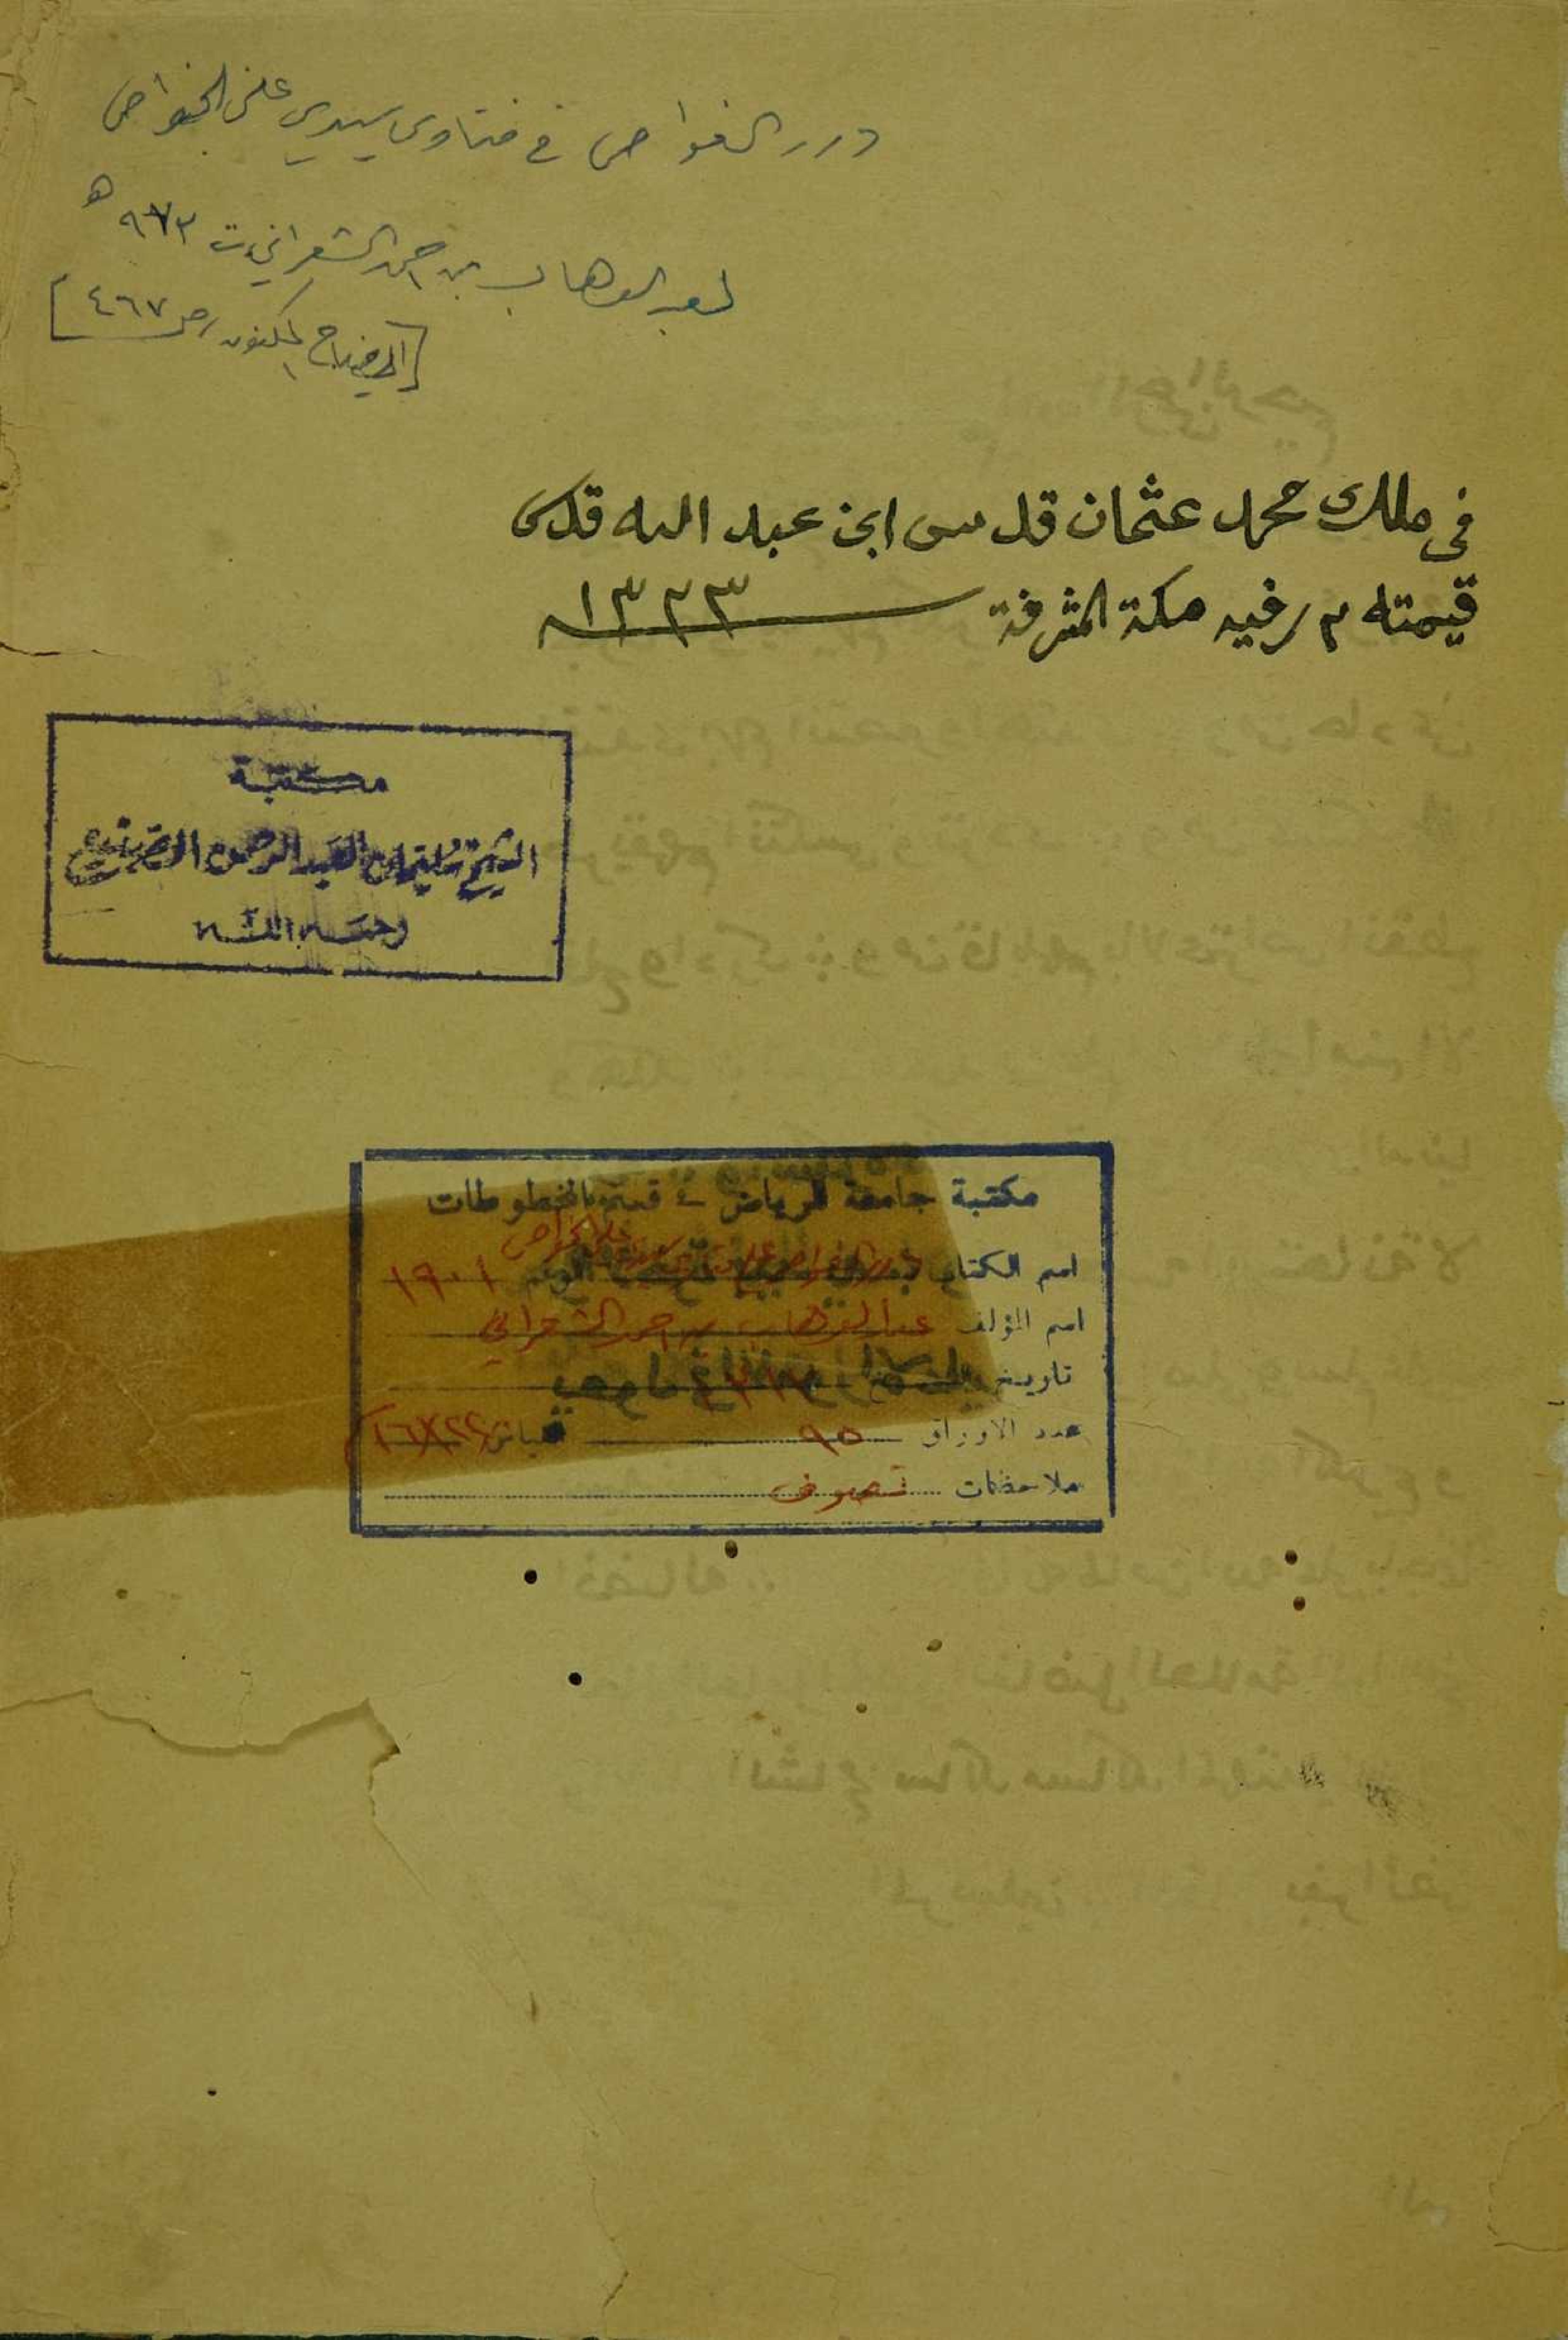 درر الغواص في فتاوى سيدي علي الخواص
لعبد الوهاب بن احمد الشعراني ت ٩٧٣ هـ
[ايضاح المكنون ص ٤٦٧]
في ملك محمد عثمان قدسى ابن عبد الله قدس
قيمته ٣ رفيه مكة المشرفة ١٣٢٣
مكتبة
الشيخ سليمان العبد الرحمن الصنيع
رحمه الله
مكتبة جامعة الرياض - قسم المخطوطات
اسم الكتاب درر الغواص على فتاوى سيدي علي الخواص الرقم ١٩٠١
اسم المؤلف عبد الوهاب بن احمد الشعراني
تاريخ النسخ
عدد الاوراق ٩٥ القياس ٢٢×١٦
ملاحظات تصوف